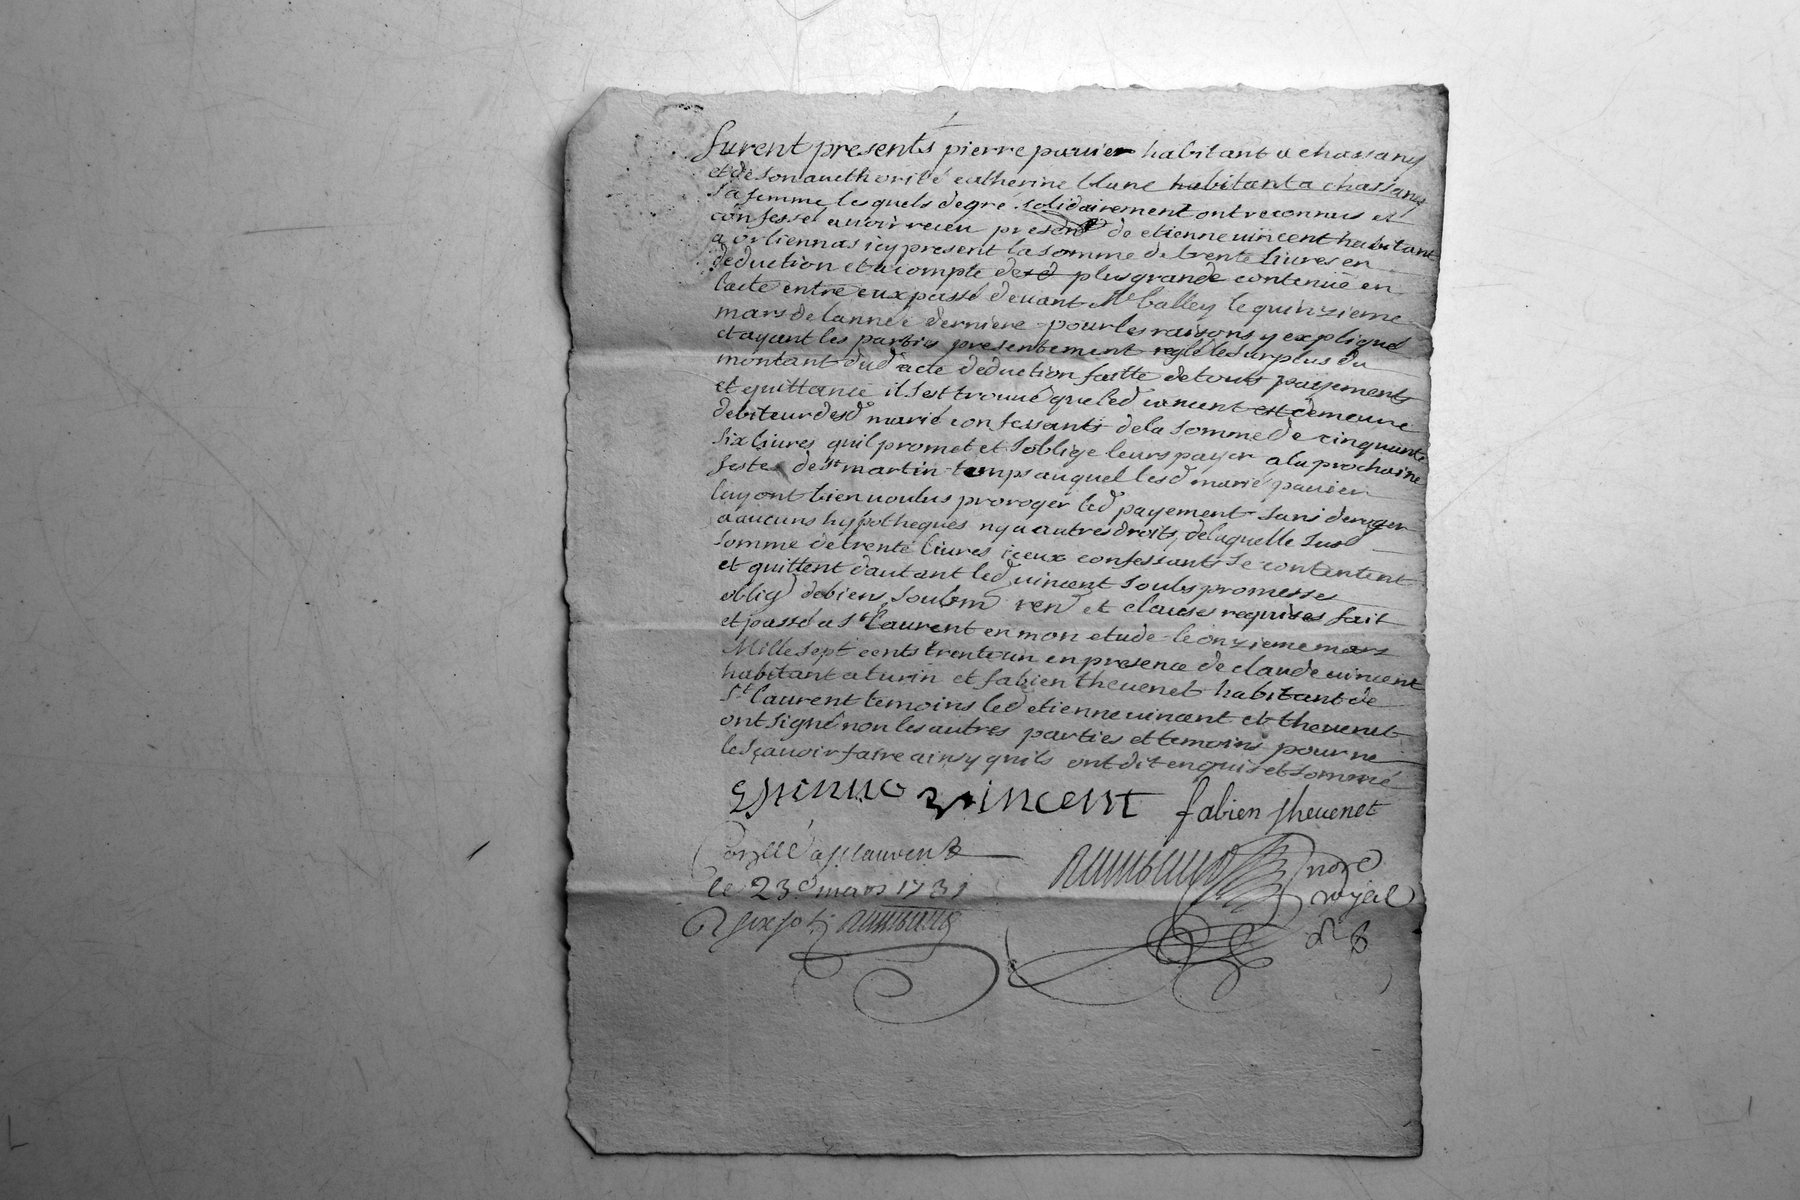 furent presents pierre pauier habitant a chassany
et de son aucthorité catherine blanc habitant a chassany
sa femme lesquels de gré solidairement ont reconnus et
confessé auoir receu present de etienne uincent habitant
a orliennas icy present la somme de trente liures en
deduction et a compte de plus grande contenüe en
lacte entre eux passé deuant Me balley le quinzieme
mars de lannéé derniere pour les raisons y expliqueé
et ayant les parties presentement reglé le surplus du
montant dud acte deduction faitte de touts payements
et quittance il sest trouué que led uincent est demeure
debiteur desd marié confessants de la somme de cinquante
six liures quil promet et soblige leurs payer a la prochaine
feste de st martin temps auquel lesd marié pauier
luy ont bien uoulus proroger led payement sans deroger
a aucuns hypotheques ny a autres droits, de laquelle susd
somme de trente liures iceux confessants se contentent
et quittent dautant led uincent soubs promesses
oblig de biens soubm ren et clauses requises fait
et passé a st laurent en mon etude le onzieme mars
Mille sept cents trente un en presence de claude uincent
habitant a turin et fabien theuenet habitant de
st laurent temoins led etienne uincent et theuenet
ont signé non les autres parties et temoins pour ne
le sçauoir faire ainsy quils ont dit enquis et sommé
uincent fabien theuenet
a st laurent
le 23e mars 1731
royal